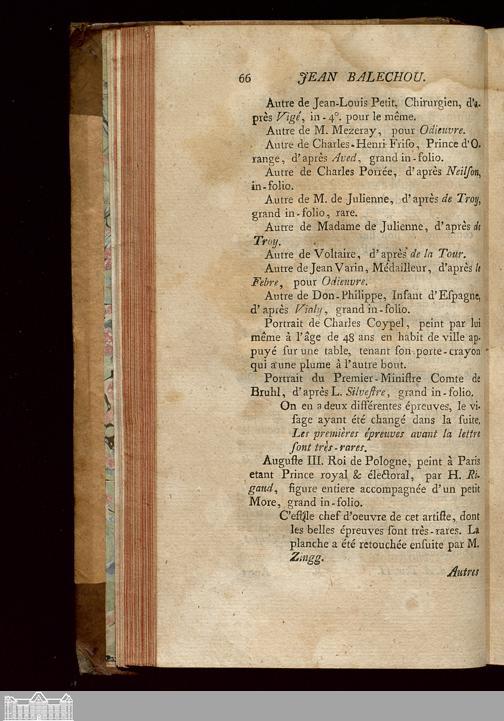 66 JEAN BALECHOU.
Autre de Jean-Louis Petit, Chirurgien, d'a-
près Vigé, in-4°. pour le même.
Autre de M. Mezeray, pour Odieuvre.
Autre de Charles-Henri Friſo, Prince d'O.
range, d'après Aved, grand in-folio.
Autre de Charles Porrée, d'après Neilſon,
in-folio.
Autre de M. de Julienne, d'après de Troy,
grand in-folio, rare.
Autre de Madame de Julienne, d'après de
Troy.
Autre de Voltaire, d'après de la Tour.
Autre de Jean Varin, Médailleur, d'après le
Febre, pour Odieuvre.
Autre de Don-Philippe, Infant d'Eſpagne,
d'après Vialy, grand in-folio.
Portrait de Charles Coypel, peint par lui
même à l'âge de 48 ans en habit de ville ap-
puyé ſur une table, tenant ſon porte-crayon
qui a une plume à l'autre bout.
Portrait du Premier-Miniſtre Comte de
Bruhl, d'après L. Silveſtre, grand in-folio.
On en a deux différentes épreuves, le vi-
ſage ayant été changé dans la ſuite.
Les premières épreuves avant la lettre
ſont très-rares.
Auguſte III. Roi de Pologne, peint à Paris
etant Prince royal & électoral, par H. Ri-
gaud, figure entiere accompagnée d'un petit
More, grand in-folio.
C'eſt le chef d'oeuvre de cet artiſte, dont
les belles épreuves ſont très-rares. La
planche a été retouchée enſuite par M.
Zingg.
Autres